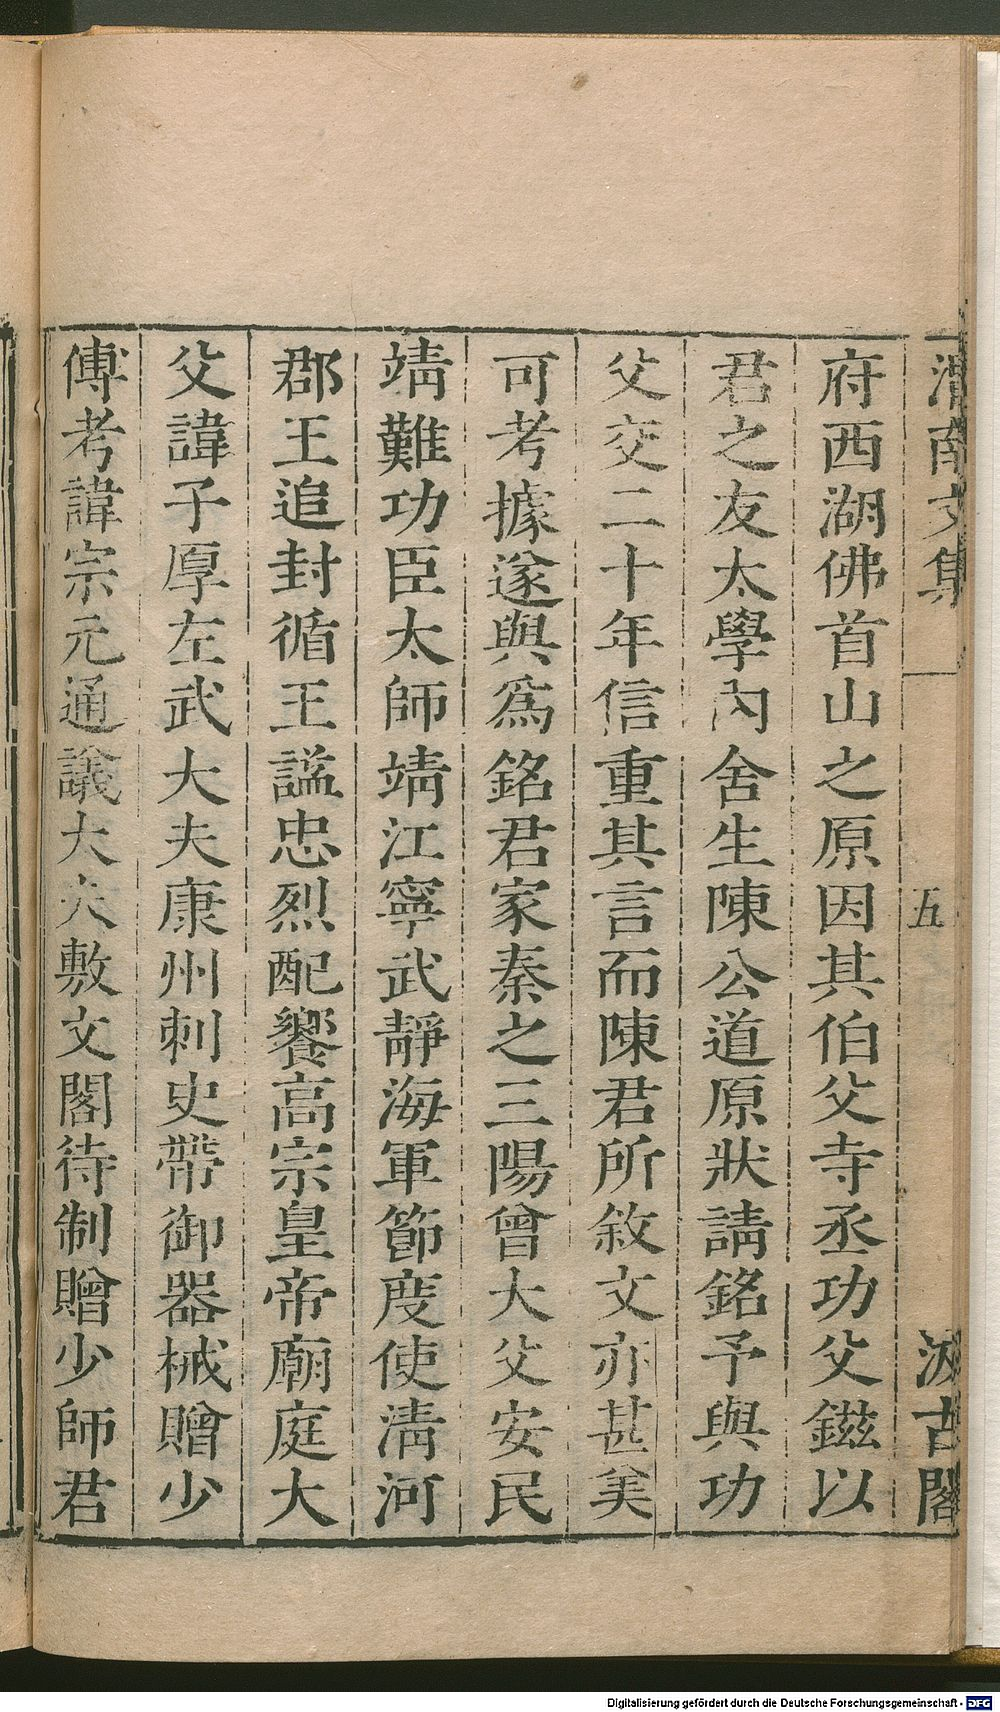 渭南文集 五 汲古閣
府西湖佛首山之原因其伯父寺丞功父鎡以
君之友太學內舍生陳公道原狀請銘予與功
父交二十年信重其言而陳君所敘文亦甚美
可考據遂與爲銘君家秦之三陽曾大父安民
靖難功臣太師靖江寧武靜海軍節度使清河
郡王追封循王諡忠烈配饗高宗皇帝廟庭大
父諱子厚左武大夫康州刺史帶御器械贈少
傅考諱宗元通議大夫敷文閣待制贈少師君
Digitalisierung gefördert durch die Deutsche Forschungsgemeinschaft - DFG